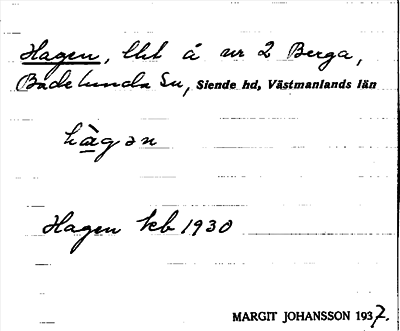 Hagen, lht å nr 2 Berga,
Badelunda Sn, Siende hd, Västmanlands län
hàgən
Hagen kb 1930
MARGIT JOHANSSON 1937.